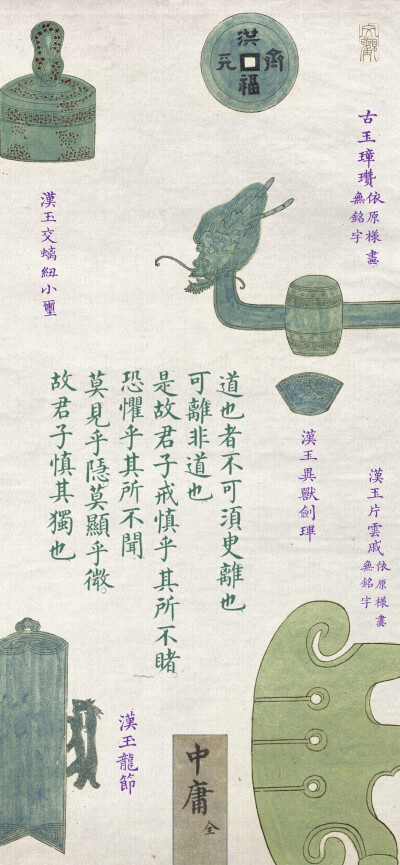 洪福齊天
古玉璋瓚
依原樣畫
無銘字
漢玉交螭紐小璽
道也者不可須臾離也
可離非道也
是故君子戒慎乎其所不睹
恐懼乎其所不聞
莫見乎隱莫顯乎微
故君子慎其獨也
漢玉異獸劍琫
漢玉片雲戚
依原樣畫
無銘字
漢玉龍節
中庸
全